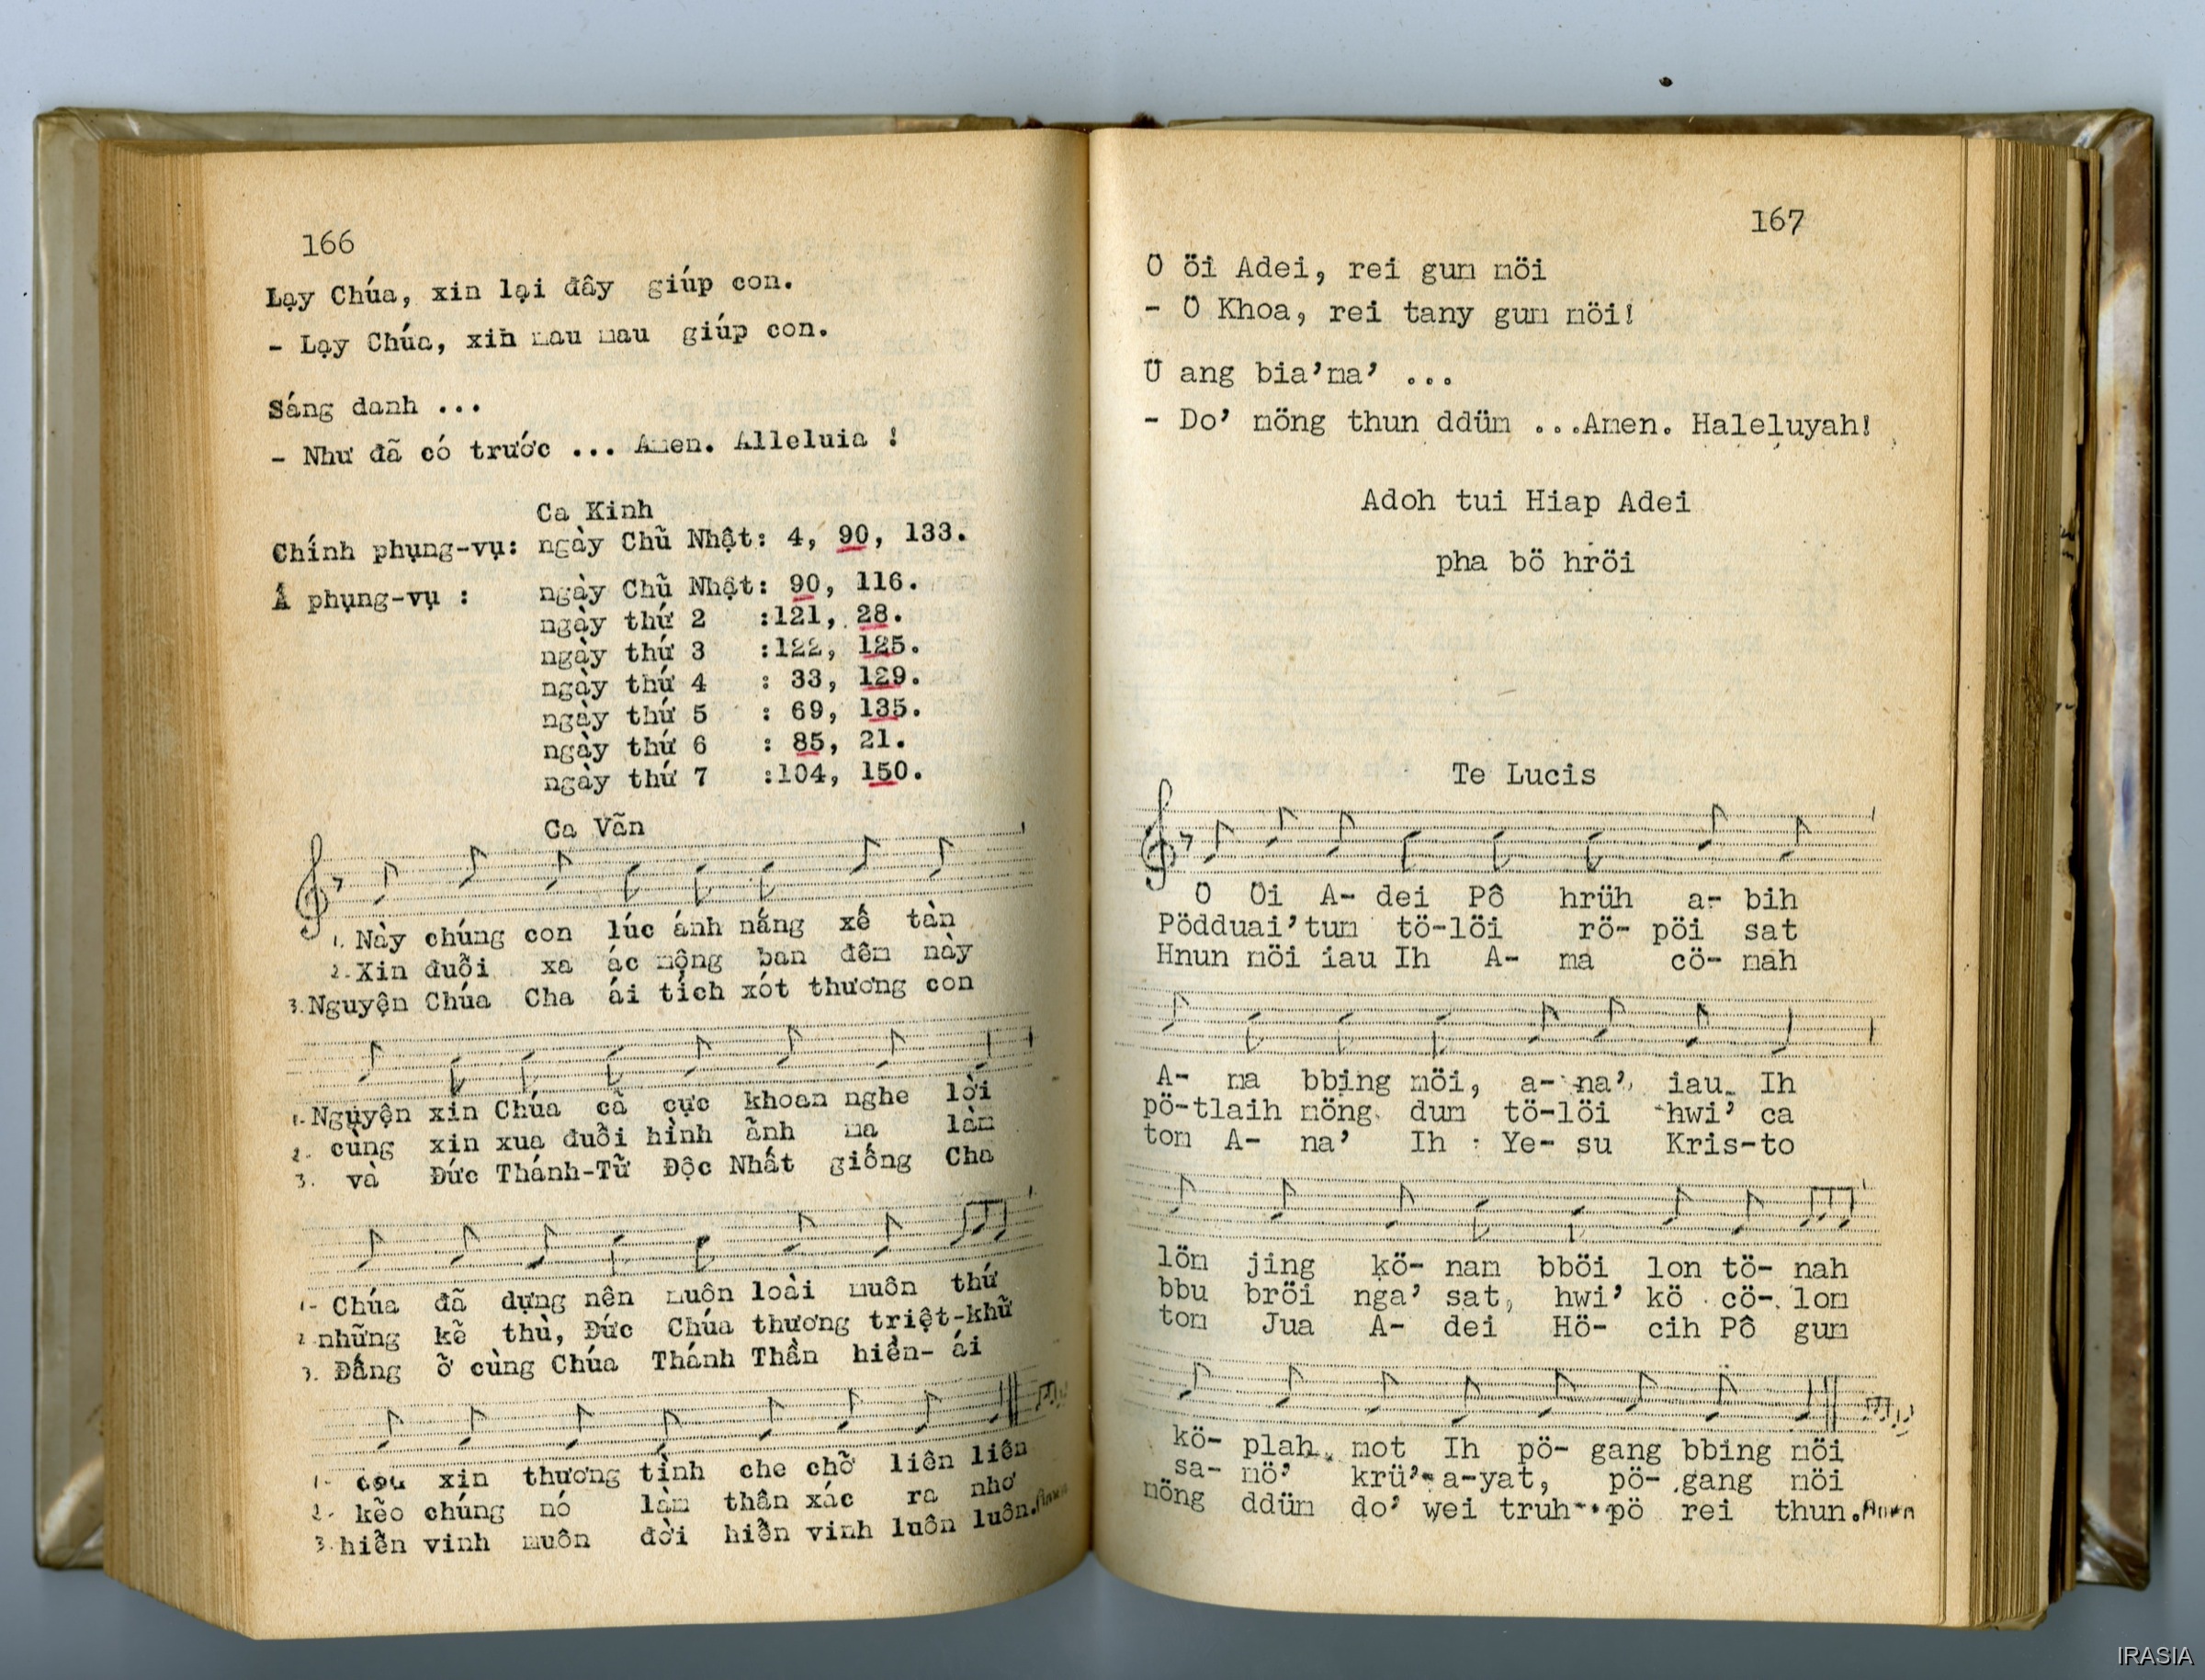 166
Lạy Chúa, xin lại đây giúp con.
- Lạy Chúa, xin mau mau giúp con.
Sáng danh ...
- Như đã có trước ... Amen. Alleluia !
Ca Kinh
Chính phụng-vụ: ngày Chũ Nhật: 4, 90, 133.
Á phụng-vụ : ngày Chũ Nhật: 90, 116.
ngày thứ 2 :121, 28.
ngày thứ 3 :122, 125.
ngày thứ 4 : 33, 129.
ngày thứ 5 : 69, 135.
ngày thứ 6 : 85, 21.
ngày thứ 7 :104, 150.
Ca Vãn
1. Này chúng con lúc ánh nắng xế tàn
2. Xin đuổi xa ác mộng ban đêm này
3. Nguyện Chúa Cha ái tích xót thương con
1. Nguyện xin Chúa cã cực khoan nghe lời
2. cùng xin xua đuổi hình ảnh ma làm
3. và Đức Thánh-Tử Độc Nhất giống Cha
1- Chúa đã dựng nên muôn loài muôn thứ
2 những kẽ thù, Đức Chúa thương triệt-khữ
3. Đấng ỡ cùng Chúa Thánh Thần hiền- ái
1- xin thương tình che chỡ liên liên
2. kẽo chúng nó làm thân xác ra nhơ
3. hiễn vinh muôn đời hiễn vinh luôn luôn. Amen
167
Ö öi Adei, rei gum möi
- Ö Khoa, rei tany gum möi!
Ü ang bia’ma’ ...
- Do’ möng thun ddüm ...Amen. Haleluyah!
Adoh tui Hiap Adei
pha bö hröi
Te Lucis
Ö Öi A- dei Pô hrüh a- bih
Pödduai’tum tö-löi rö- pöi sat
Hnun möi iau Ih A- ma cö- mah
A- ma bbing möi, a- na’, iau Ih
pö-tlaih möng dum tö-löi hwi’ ca
tom A- na’ Ih Ye- su Kris-to
lön jing kö- nam bböi lon tö- nah
bbu bröi nga’ sat, hwi’ kö cö- lom
tom Jua A- dei Hö- cih Pô gum
kö- plah mot Ih pö- gang bbing möi
sa- mö’ krü’- a-yat, pö- gang möi
möng ddüm do’ wei truh pö rei thun. Amen
IRASIA